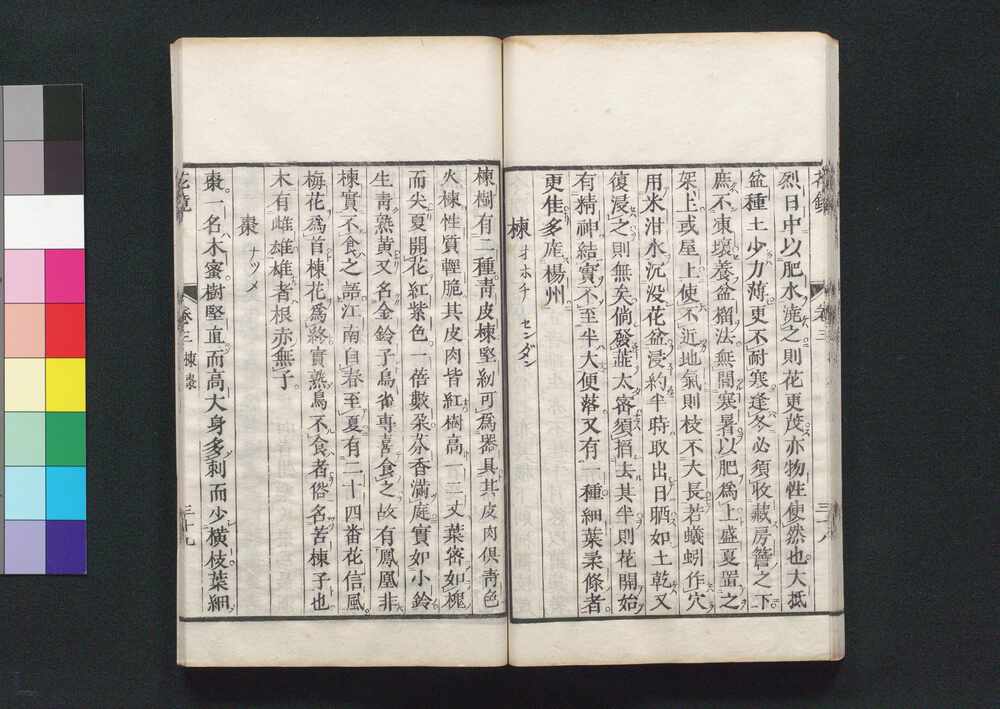 烈日中以肥水澆之則花更茂亦物性使然也大抵
盆種土少力薄更不耐寒逢冬必須收藏房簷之下
庶不凍壞養盆榴法無間寒暑以肥爲上盛夏置之
架上或屋上使不近地氣則枝不大長若蟻蚓作穴
用米泔水沉沒花盆浸約半時取出日晒如土乾又
復浸之則無矣倘發蕋太密須掐去其半則花開始
有精神結實不至半大便落又有一種細葉柔條者
更佳多產楊州
楝 オホチ センダン
卷三
楝樹有二種青皮楝堅紉可爲器具其皮肉俱青色
火楝性質輕脆其皮肉皆紅樹高一二丈葉密如槐
而尖夏開花紅紫色一蓓數朶芬香滿庭實如小鈴
生青熟黄又名金鈴子鳥雀專喜食之故有鳳凰非
楝實不食之語江南自春至夏有二十四番花信風
梅花爲首楝花爲終實熟鳥不食者俗名苦楝子也
木有雌雄雄者根赤無子
棗 ナツメ
棗一名木蜜樹堅直而高大身多刺而少橫枝葉細
花鏡 卷三 楝棗 三十九